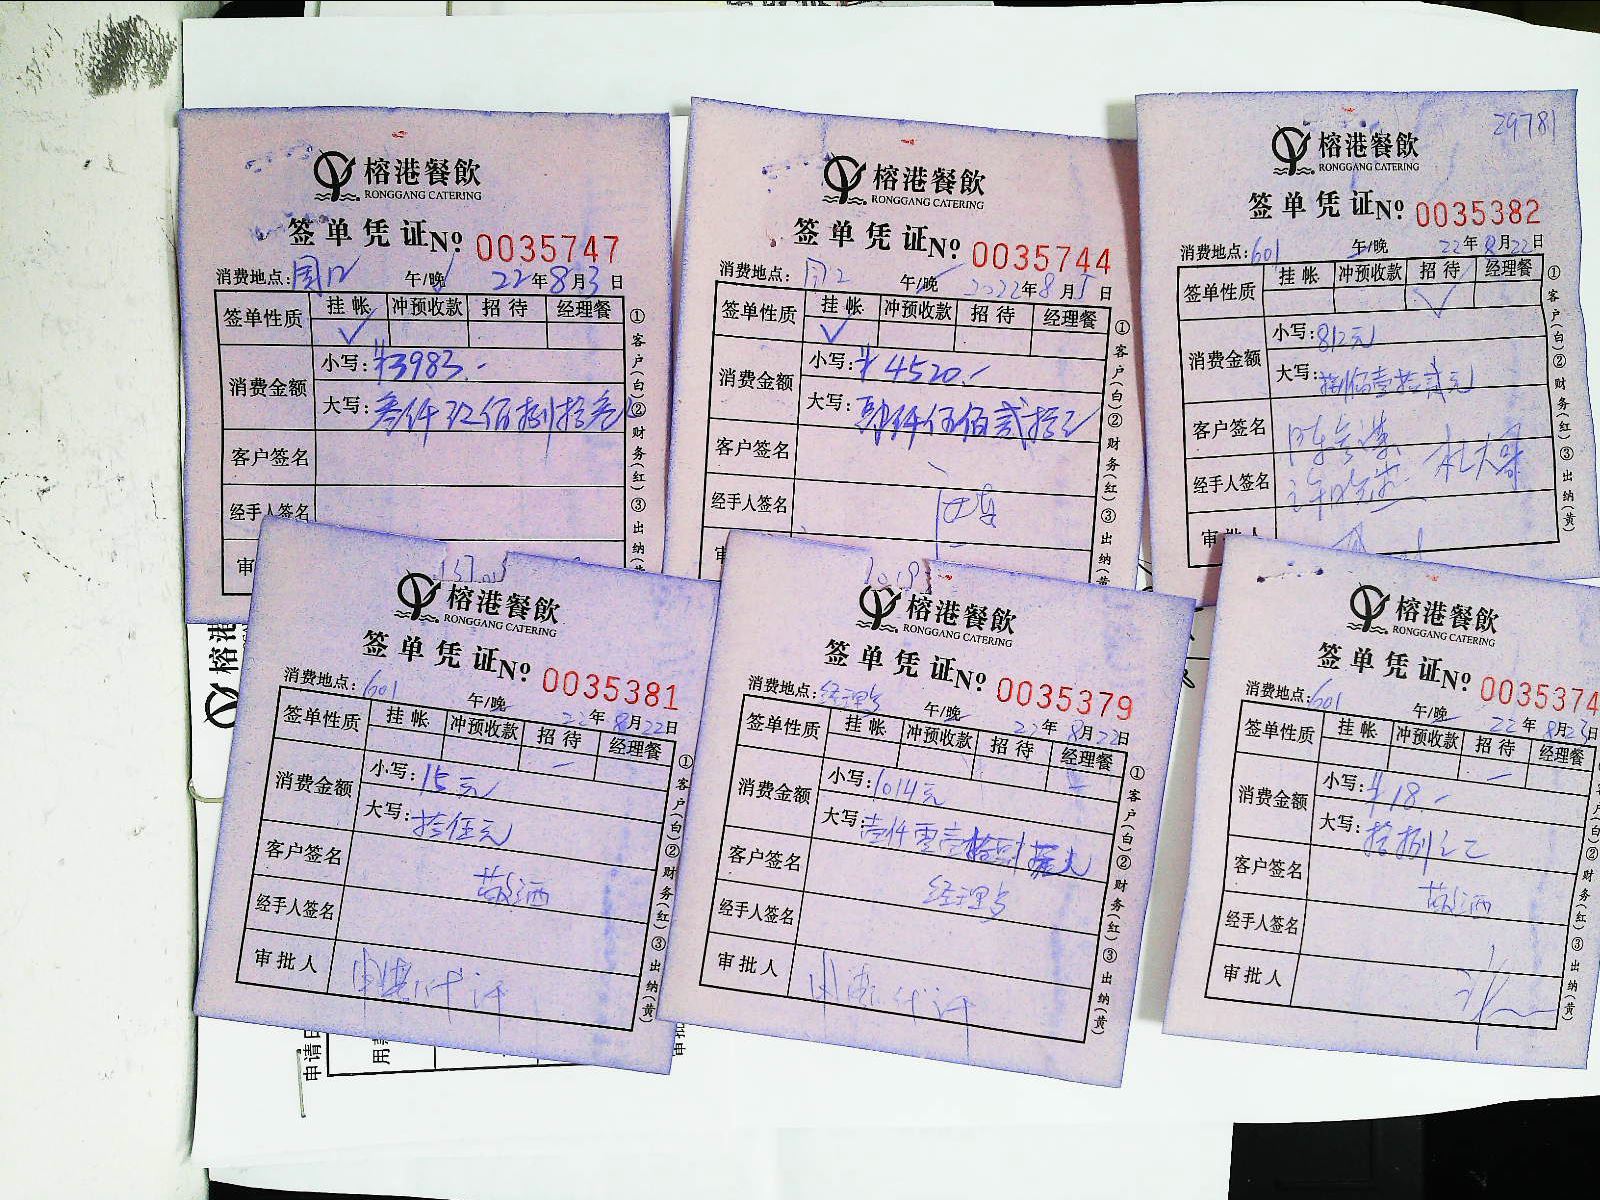 榕港餐飲
RONGGANG CATERING
签单凭证 № 0035747
消费地点: 周口 午/晚 22年8月3日
签单性质 挂帐 冲预收款 招待 经理餐
消费金额 小写: ¥3983.-
大写: 叁仟玖佰捌拾叁
客户签名
经手人签名
审
①客户(白)②财务(红)③出纳(黄
榕港餐飲
RONGGANG CATERING
签单凭证 № 0035744
消费地点: 午/晚 2022年8月5日
签单性质 挂帐 冲预收款 招待 经理餐
消费金额 小写: ¥4520.-
大写: 肆仟伍佰贰拾元
客户签名
经手人签名
审
①客户(白)②财务(红)③出纳(黄
29781
榕港餐飲
RONGGANG CATERING
签单凭证 № 0035382
消费地点: 601 午/晚 22年8月22日
签单性质 挂帐 冲预收款 招待 经理餐
消费金额 小写: 812元
大写: 捌佰壹拾贰元
客户签名
经手人签名
审批人
①客户(白)②财务(红)③出纳(黄)
榕港餐飲
RONGGANG CATERING
签单凭证 № 0035381
消费地点: 601 午/晚 22年8月22日
签单性质 挂帐 冲预收款 招待 经理餐
消费金额 小写: 15元
大写: 拾伍元
客户签名
经手人签名
审批人
①客户(白)②财务(红)③出纳(黄)
榕港餐飲
RONGGANG CATERING
签单凭证 № 0035379
消费地点: 经理 午/晚 22年8月22日
签单性质 挂帐 冲预收款 招待 经理餐
消费金额 小写: 1014元
大写: 壹仟零壹拾
客户签名 经理
经手人签名
审批人
①客户(白)②财务(红)③出纳(黄)
榕港餐飲
RONGGANG CATERING
签单凭证 № 0035374
消费地点: 601 午/晚 22年8月23日
签单性质 挂帐 冲预收款 招待 经理餐
消费金额 小写: ¥18.-
大写: 拾捌元
客户签名
经手人签名
审批人
①客户(白)②财务(红)③出纳(黄)
榕港
申请
用
申批